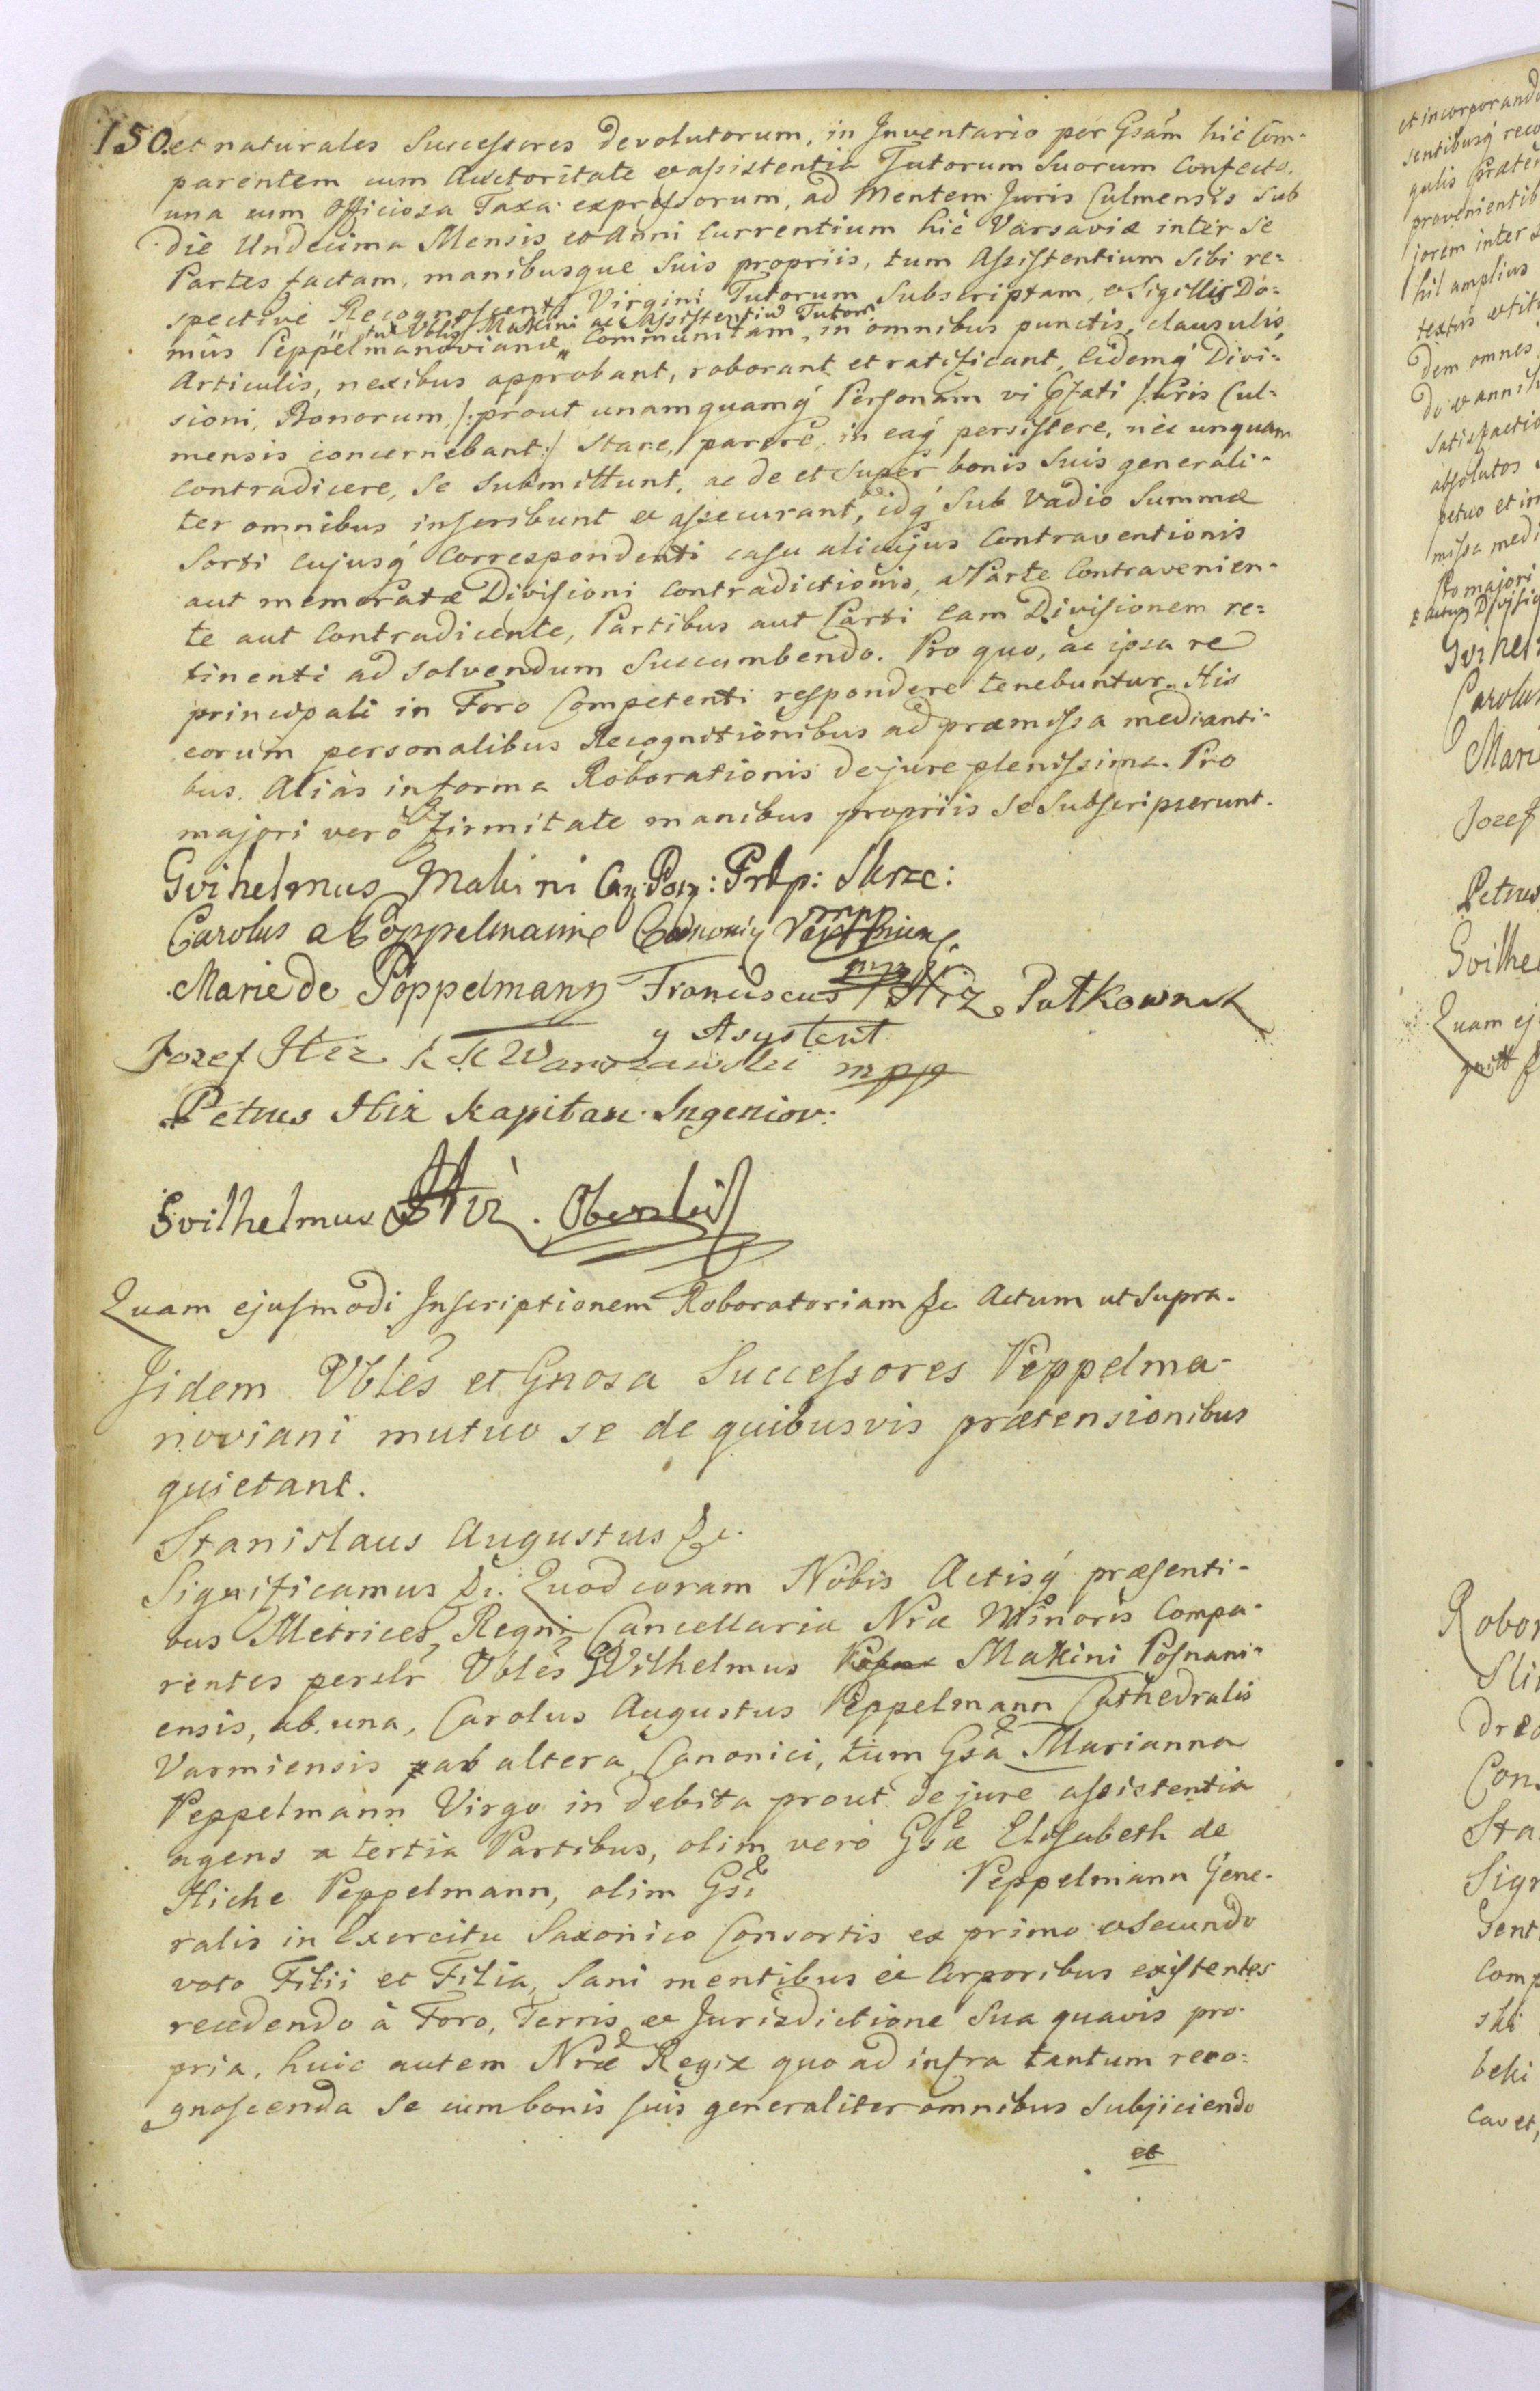 150. et naturales Successores devolutorum, in Inventario per Gsam hic Com-
parentem cum Auctoritate et assistentia Tutorum Suorum Confecto,
una cum Officiosa Taxa expressorum, ad Mentem Juris Culmensis sub
die Undecima Mensis et Anni Currentium hic Varsaviæ inter Se
Partes factam, manibusque Suis propriis, tum Assistentium Sibi re-
spective Recognoscenti Virgini Tutorum Subscriptam, et Sigillis Do-
tum Vblis Makini ac Assistentiũ Tutor
mûs Peppelmanovianæ Communitam, in omnibus punctis, clausulis,
Articulis, nexibus approbant, roborant et ratificant, Eidemq́ Divi-
sioni, Bonorum /: prout unamquamq́ Personam vi Pfati Juris Cul-
mensis concernebant :/ Stare, parere, in eaq́ persistere, nec unquam
contradicere, Se Submittunt, ac de et Super bonis Suis generali-
ter omnibus inscribunt et assecurant, idq́ Sub Vadio Summæ
Sorti cujusq́ Correspondenti casu alicujus Contraventionis
aut memoratæ Divisioni Contradictionis, a Parte Contravenien-
te aut Contradicente, Partibus aut Parti Eam Divisionem re-
tinenti ad Solvendum Succumbendo. Pro quo, ac ipsa re
principali in Foro Competenti respondere tenebuntur. His
eorum personalibus Recognitionibus ad præmissa medianti-
bus. Alias in forma Roborationis de jure plenissima. Pro
majori vero firmitate manibus propriis Se Subscripserunt.
Gvihelmus Makini Can: Posn: Prep: Skrze:
Carolus a Pöppelmann Canonig Varmiens. mpp
Marie de Pöppelmann Franciscus Hiż Pułkownik
y Asystent
Jozef Hiż Warszawski mpp
Petrus Hiż Kapitan Ingenior:
Gvilhelmus Hiż. Oberleit
Quam ejusmodi Inscriptionem Roboratoriam &c Actum ut Supra.
Iidem Vbles et Gnosa Successores Peppelma-
noviani mutuo se de quibusvis prætensionibus
quietant.
Stanislaus Augustus &c.
Significamus &c. Quod coram Nobis Actisq́ præsenti-
bus Metrices Regni Cancellariæ Nræ Minoris Compa-
rentes persltr Vbles GVilhelmus Makini Posnani-
ensis, ab una, Carolus Augustus Peppelmann Cathedralis
Varmiensis ab altera, Canonici, tum Gsa Marianna
Peppelmann Virgo in debita prout de jure assistentia
agens a tertia Partibus, olim vero Gsæ Elisabeth de
Hiche Peppelmann, olim Gsi Peppelmann Gene-
ralis in Exercitu Saxonico Consortis ex primo et Secundo
voto Filii et Filia, Sani mentibus et Corporibus existentes
recedendo à Foro, Terris et Jurisdictione Sua quavis pro-
pria, huic autem Nræ Regiæ quo ad infra tantum reco-
gnoscenda Se cum bonis suis generaliter omnibus Subjiciendo
et